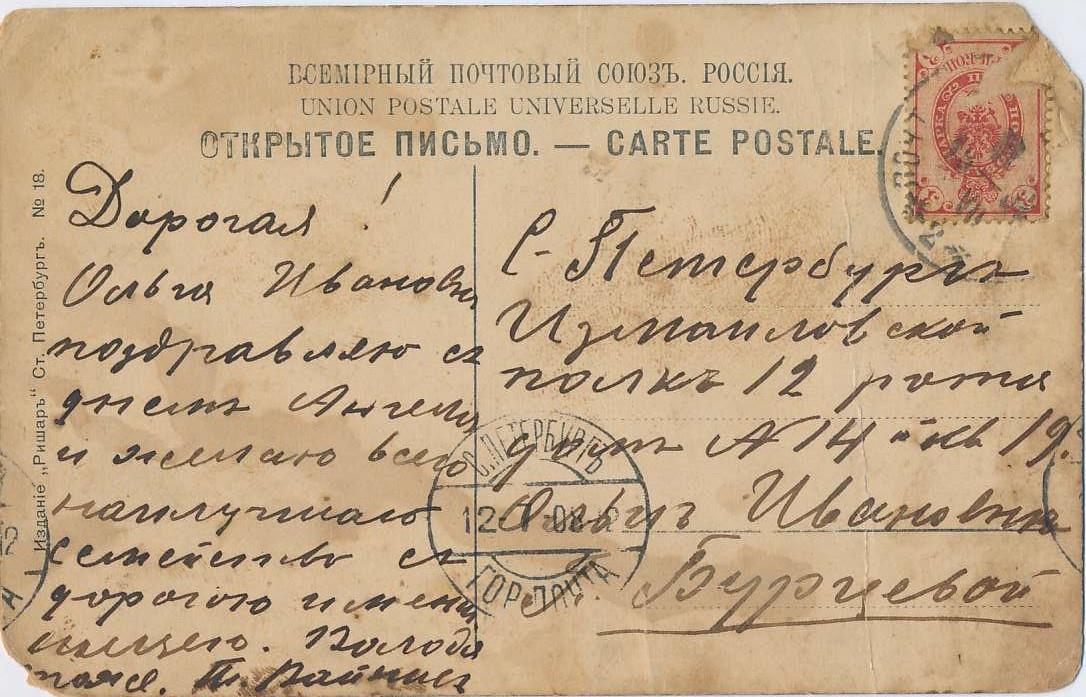 ВСЕМІРНЫЙ ПОЧТОВЫЙ СОЮЗЪ. РОССІЯ.
UNION POSTALE UNIVERSELLE RUSSIE.
ОТКРЫТОЕ ПИСЬМО. — CARTE POSTALE.
Изданіе „Ришаръ“ Ст. Петербургъ. № 18.
Дорогая!
Ольга Ивановна
поздравляю съ
днемъ Ангела
и желаю всего
наилучшаго
семейство съ
дорогою имени
ницею. Володя
тоже. П.
С-Петербургъ
Измаиловской
полкъ 12 рота
домъ № 14 кв 19.
Ольгѣ Ивановне
Бургиевой
С.ПЕТЕРБУРГЪ
ГОР.ПОЧТА
МАРКА
3